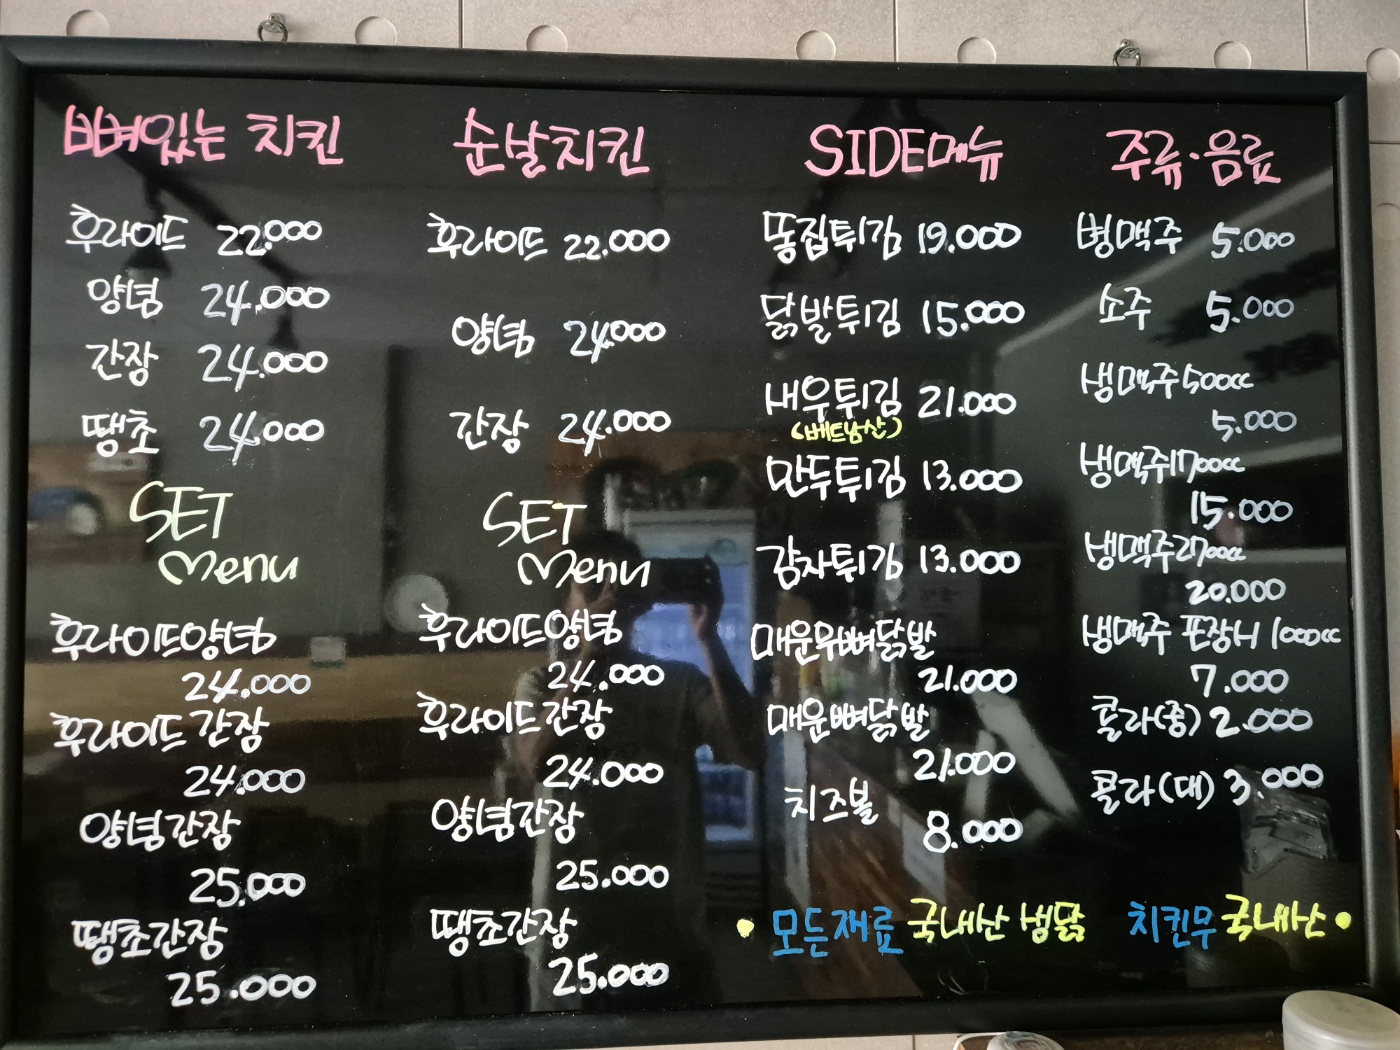 뼈있는 치킨
후라이드 22.000
양념 24.000
간장 24.000
땡초 24.000
SET
Menu
후라이드양념
24.000
후라이드간장
24.000
양념간장
25.000
땡초간장
25.000
순살치킨
후라이드 22.000
양념 24.000
간장 24.000
SET
Menu
후라이드양념
24.000
후라이드간장
24.000
양념간장
25.000
땡초간장
25.000
SIDE메뉴
똥집튀김 19.000
닭발튀김 15.000
새우튀김 21.000
(베트남산)
만두튀김 13.000
감자튀김 13.000
매운무뼈닭발
21.000
매운뼈닭발
21.000
치즈볼
8.000
주류·음료
병맥주 5.000
소주 5.000
생맥주500cc
5.000
생맥주1700cc
15.000
생맥주2700cc
20.000
생맥주 포장시 1000cc
7.000
콜라(중) 2.000
콜라(대) 3.000
• 모든재료 국내산 생닭 치킨무 국내산 •